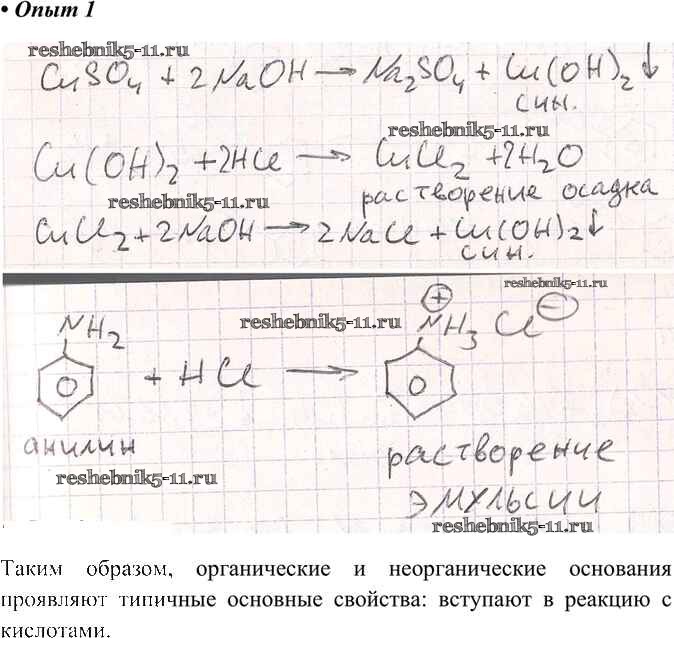 • Опыт 1
reshebnik5-11.ru
CuSO₄ + 2NaOH → Na₂SO₄ + Cu(OH)₂↓
син.
reshebnik5-11.ru
Cu(OH)₂ + 2HCl → CuCl₂ + 2H₂O
растворение осадка
reshebnik5-11.ru
CuCl₂ + 2NaOH → 2NaCl + Cu(OH)₂↓
син.
reshebnik5-11.ru
NH₂ reshebnik5-11.ru NH₃ ⊕ Cl ⊖
+ HCl →
анилин растворение
reshebnik5-11.ru
эмульсии
reshebnik5-11.ru
Таким образом, органические и неорганические основания
проявляют типичные основные свойства: вступают в реакцию с
кислотами.